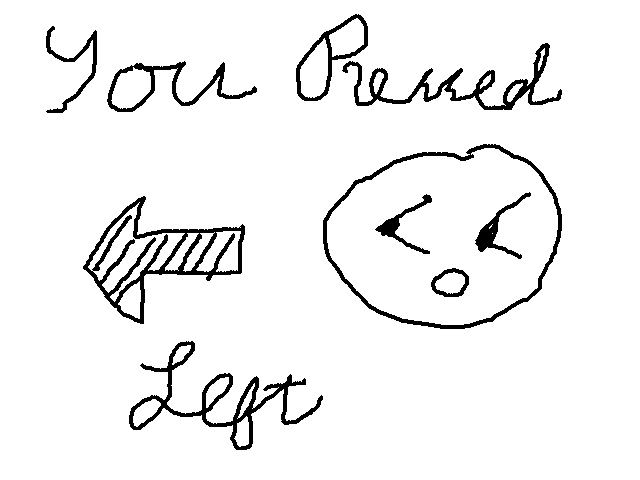 You Pressed
Left